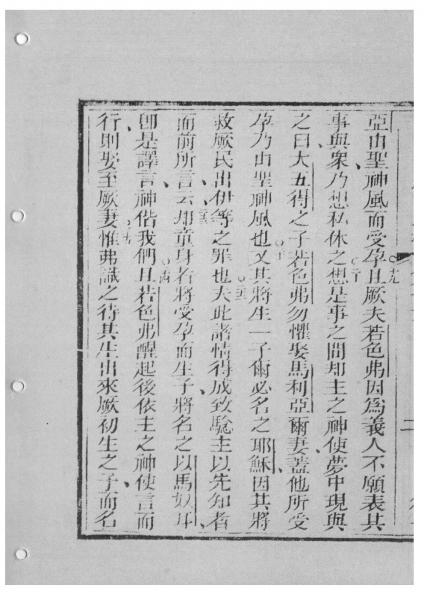 亞由聖神風而受孕且厥夫若色弗因爲義人不願表其
事與衆乃想私休之想是事之間却主之神使夢中現與
之曰大五得之子若色弗勿懼娶馬利亞爾妻蓋他所受
孕乃由聖神風也又其將生一子爾必名之耶穌因其將
救厥民出伊等之罪也夫此諸情得成致驗主以先知者
面前所言云却童身者將受孕而生子將名之以馬奴耳
卽是譯言神偕我們且若色弗醒起後依主之神使言而
行則娶至厥妻惟弗識之待其生出來厥初生之子而名